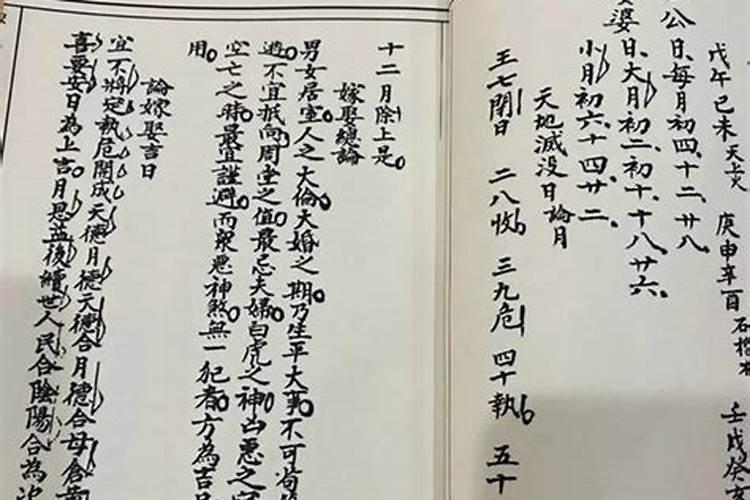 戊午己未天上火 庚申辛酉石榴木 壬戌癸
公日每月初四十二廿八
婆日大月初二初十十八廿六
小月初六十四廿二
天地滅没日論月
王七閉日 二八收 三九危 四十執 五十
十二月除上是
嫁娶總論
男女居室人之大倫大婚之期乃生平大事不可苟
避不宜祇向周堂之值最忌夫婦白虎之神凶惡之
空亡之時最宜謹避而衆惡神煞無一犯者方為吉
用
論嫁娶吉日
宜不將定執危開成天德月德天德合月德合母倉
喜要安日為上吉月恩益後續世人民合陰陽合為次